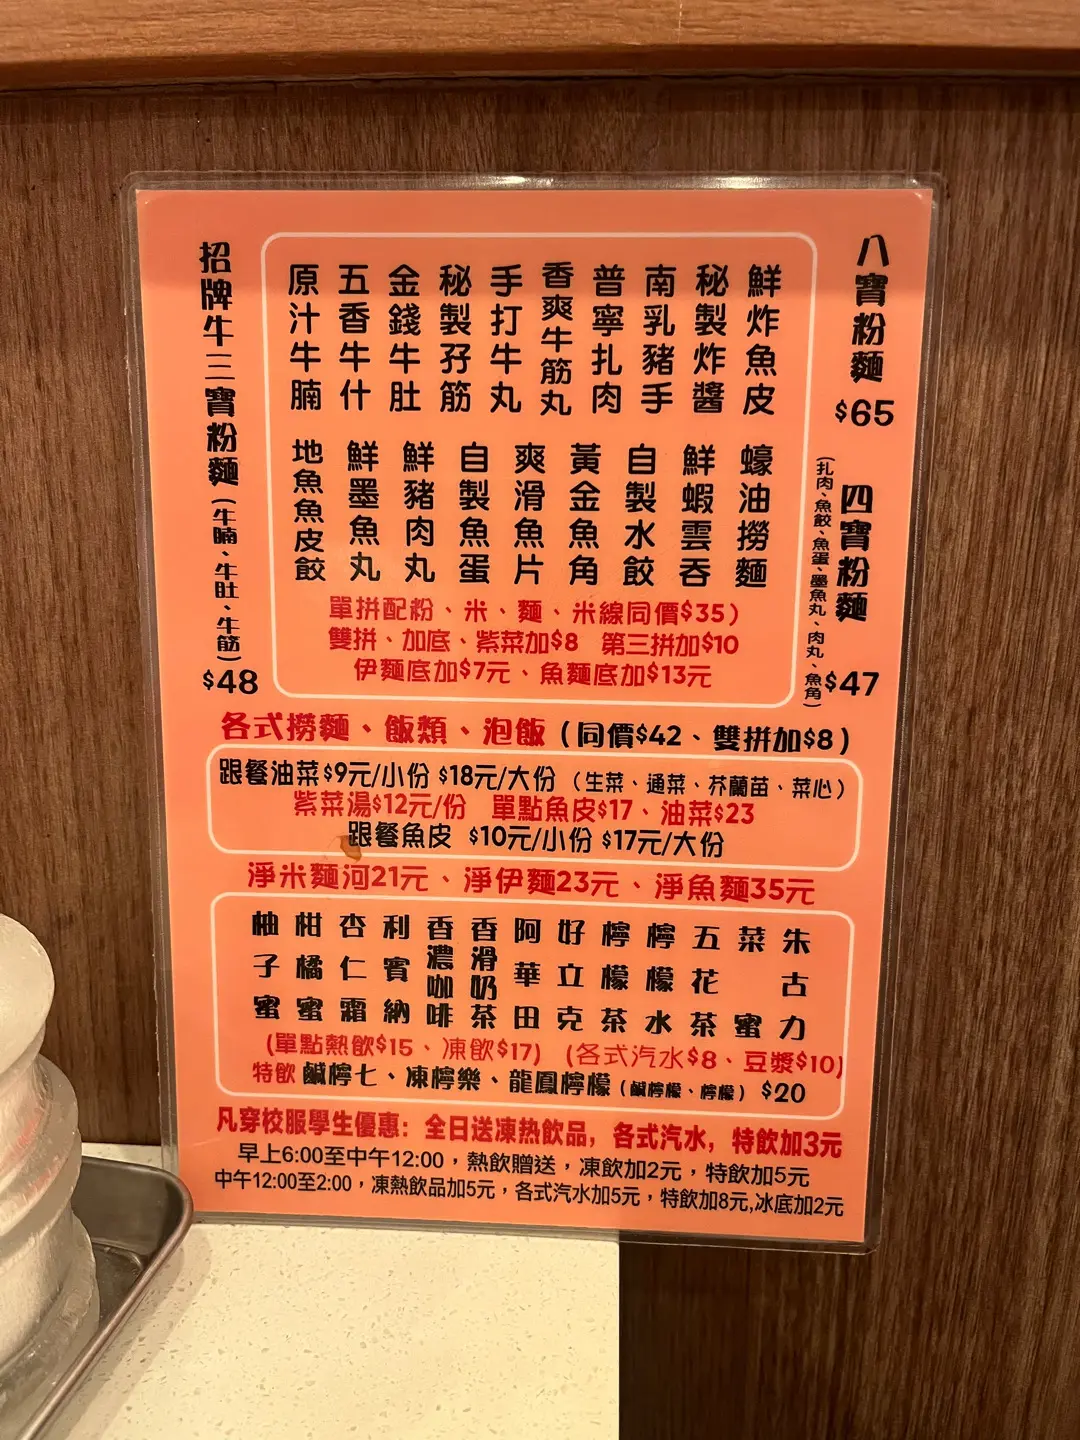 八寶粉麵
$65
四寶粉麵
(扎肉、魚餃、魚蛋、墨魚丸、肉丸、魚角)
$47
鮮炸魚皮
秘製炸醬
南乳豬手
普寧扎肉
香爽牛筋丸
手打牛丸
秘製孖筋
金錢牛肚
五香牛什
原汁牛腩
蠔油撈麵
鮮蝦雲吞
自製水餃
黃金魚角
爽滑魚片
自製魚蛋
鮮豬肉丸
鮮墨魚丸
地魚魚皮餃
單拼配粉、米、麵、米線同價$35)
雙拼、加底、紫菜加$8 第三拼加$10
伊麵底加$7元、魚麵底加$13元
招牌牛三寶粉麵(牛腩、牛肚、牛筋)
$48
各式撈麵、飯類、泡飯(同價$42、雙拼加$8)
跟餐油菜$9元/小份 $18元/大份 (生菜、通菜、芥蘭苗、菜心)
紫菜湯$12元/份 單點魚皮$17、油菜$23
跟餐魚皮 $10元/小份 $17元/大份
淨米麵河21元、淨伊麵23元、淨魚麵35元
朱古力
菜蜜
五花茶
檸檬水
檸檬茶
好立克
阿華田
香滑奶茶
香濃咖啡
利賓納
杏仁霜
柑橘蜜
柚子蜜
(單點熱飲$15、凍飲$17) (各式汽水$8、豆漿$10)
特飲 鹹檸七、凍檸樂、龍鳳檸檬(鹹檸檬、檸檬) $20
凡穿校服學生優惠: 全日送凍熱飲品, 各式汽水, 特飲加3元
早上6:00至中午12:00,熱飲贈送,凍飲加2元,特飲加5元
中午12:00至2:00,凍熱飲品加5元,各式汽水加5元,特飲加8元,冰底加2元